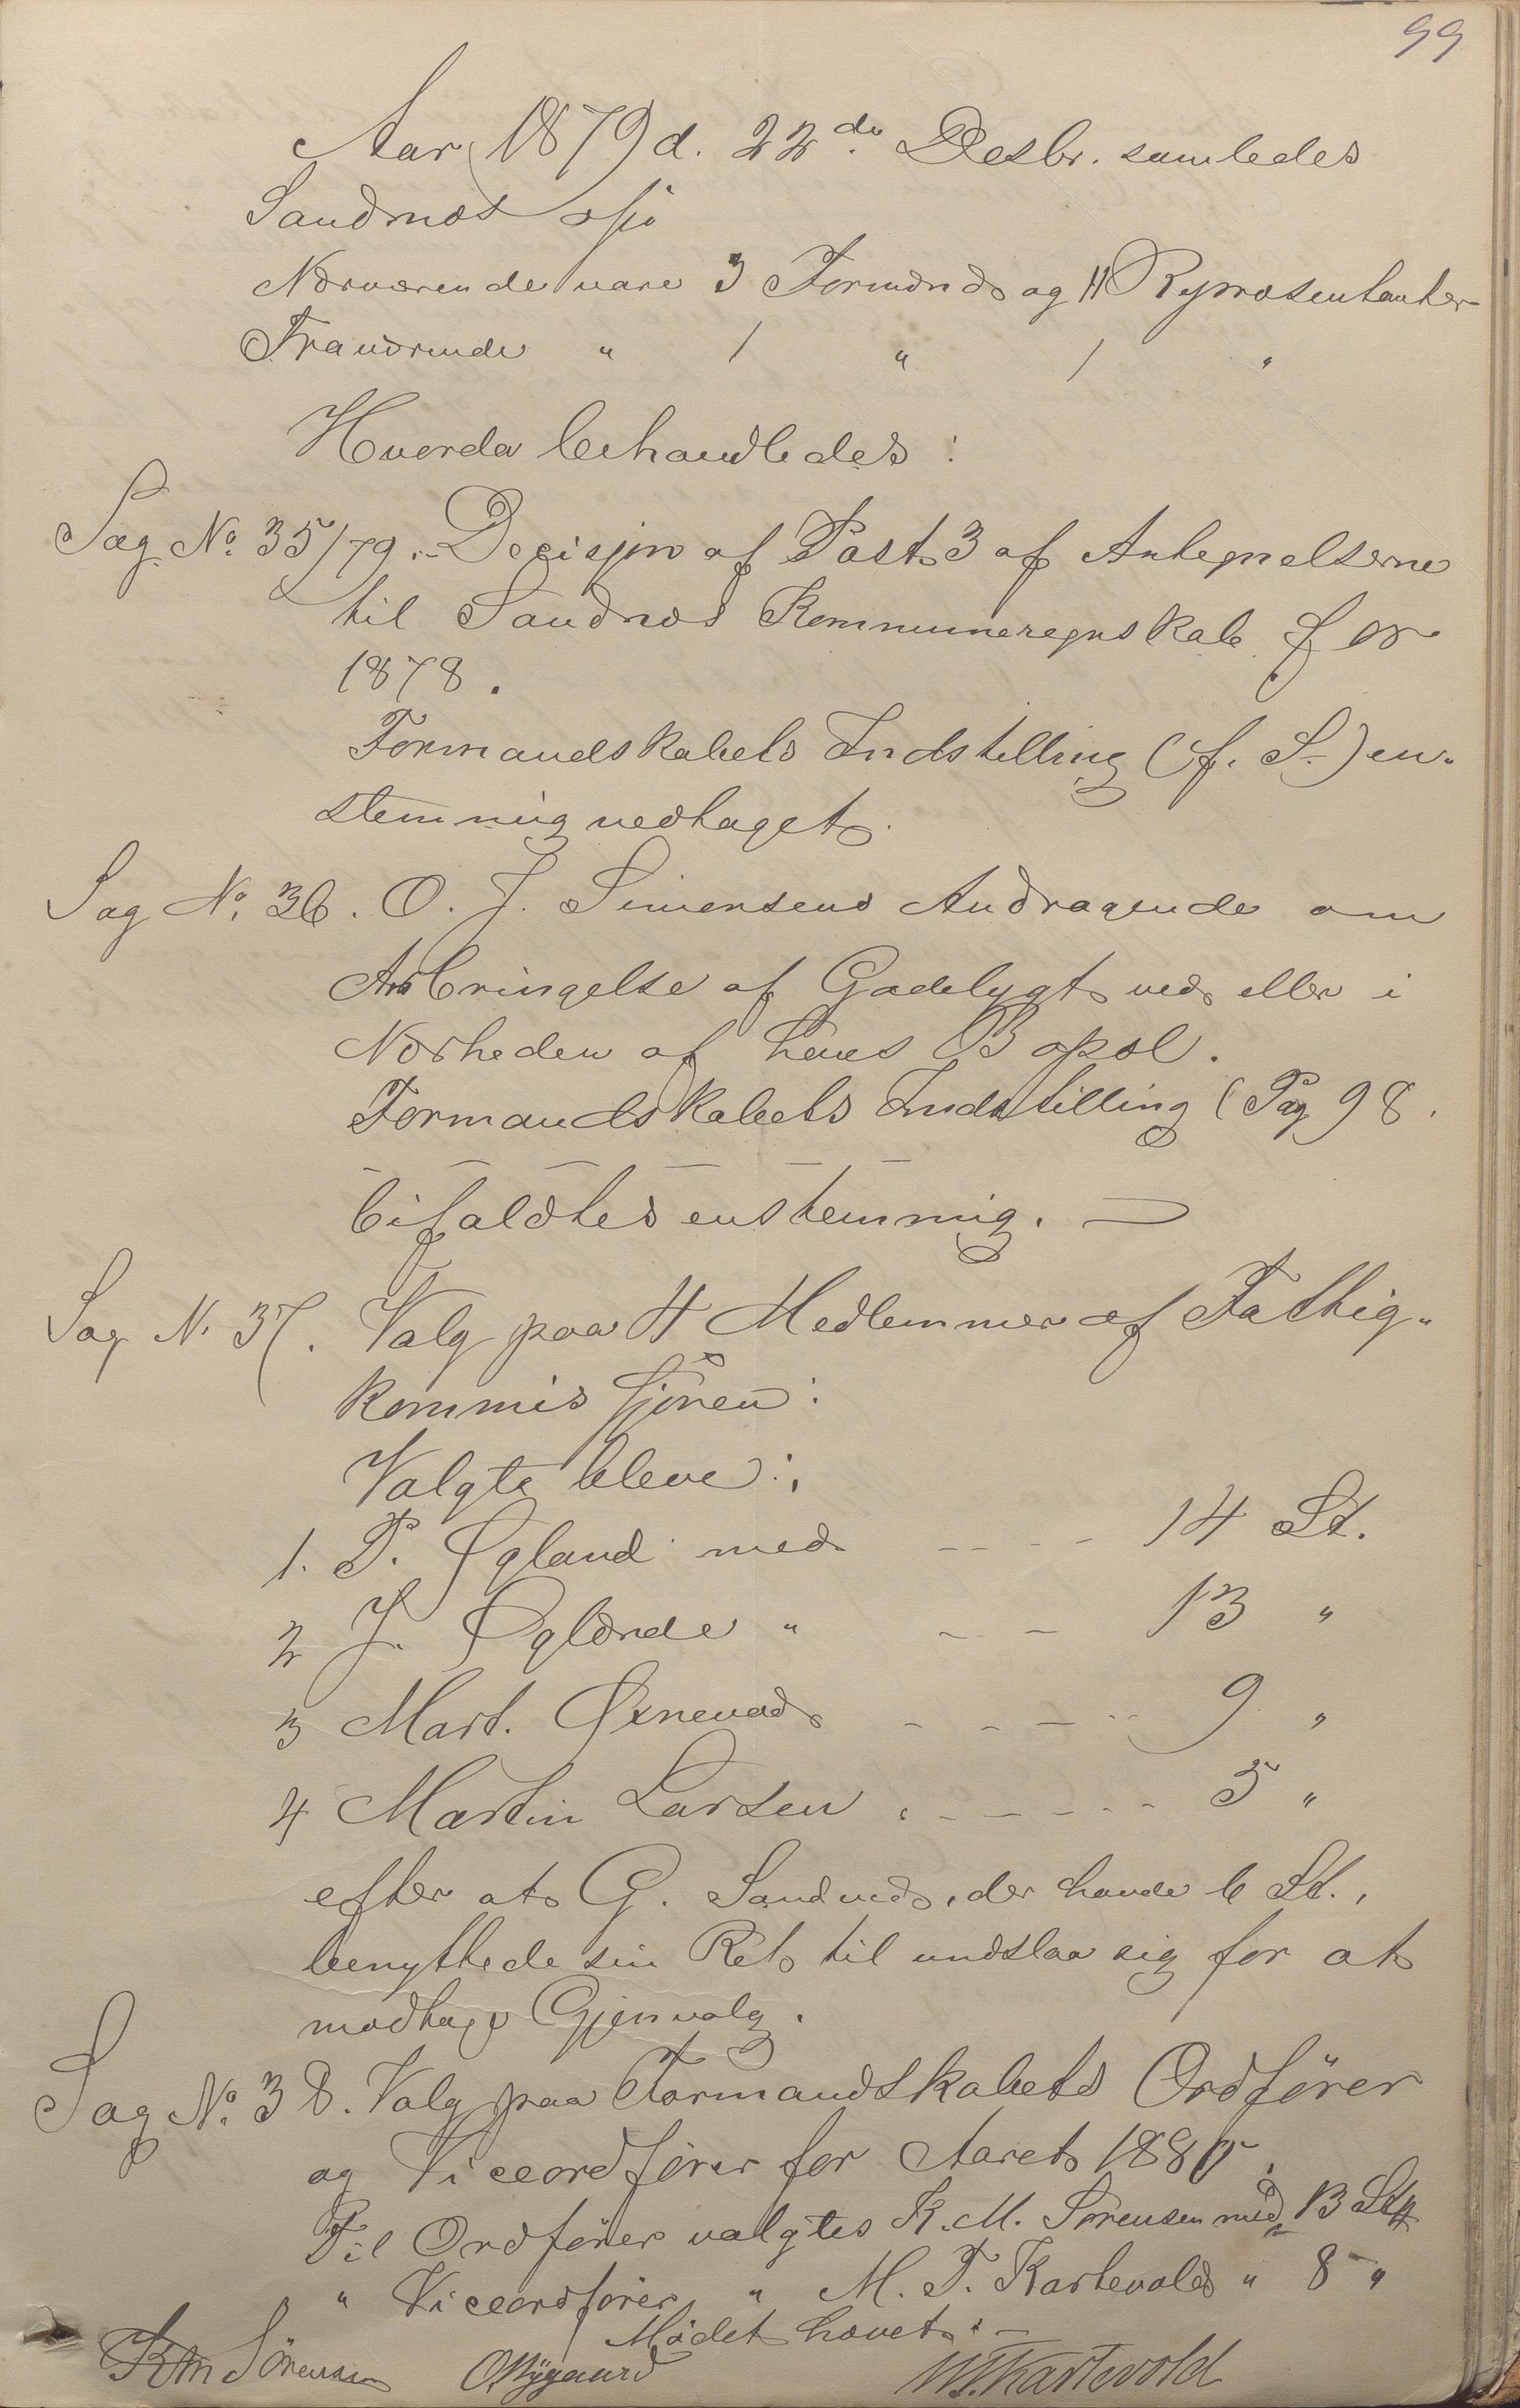 99
Aar 1879 d. 22de Desbr. samledes
Sandnæs
Nærværende vare 3 Formænd og 11 Repræsentanter
Fraværende " 1 " 1 "
Hvorda behandledes:
Sag No. 35/79. Decisjon af Post 3 af Antegnelserne
til Sandnæs Kommuneregnskab for
1878.
Formandskabets Indstilling (f. S.) en-
stemmig vedtaget.
Sag No. 36. O. J. Simensens Andragende om
Anbringelse af Gadelygt ved eller i
Nærheden af hans Bopæl.
Formandskabets Indstilling (Pag 98.
bifaldtes enstemmig. —
Sag N. 37. Valg paa 4 Medlemmer af Fattig-
kommissjonen:
Valgte bleve:
1. P. Øgland med - - - - 14 St.
2 J. Øglænde " - - 13 "
3 Mart. Øxnevad - - - - 9 "
4 Martin Larsen . - - - - - 5 "
efter at G. Sandved, der havde 6 St.,
benyttede sin Ret til undslaa sig for at
modtage Gjenvalg.
Sag No. 38. Valg paa Formandskabets Ordfører
og Viceordfører for Aaret 1880.
Til Ordfører valgtes K. M. Sørensen med 13 St
" Viceordfører " M. T. Kartevold " 8 "
Mødet hævet. -
KM Sörensen OBygaard MTKartevold